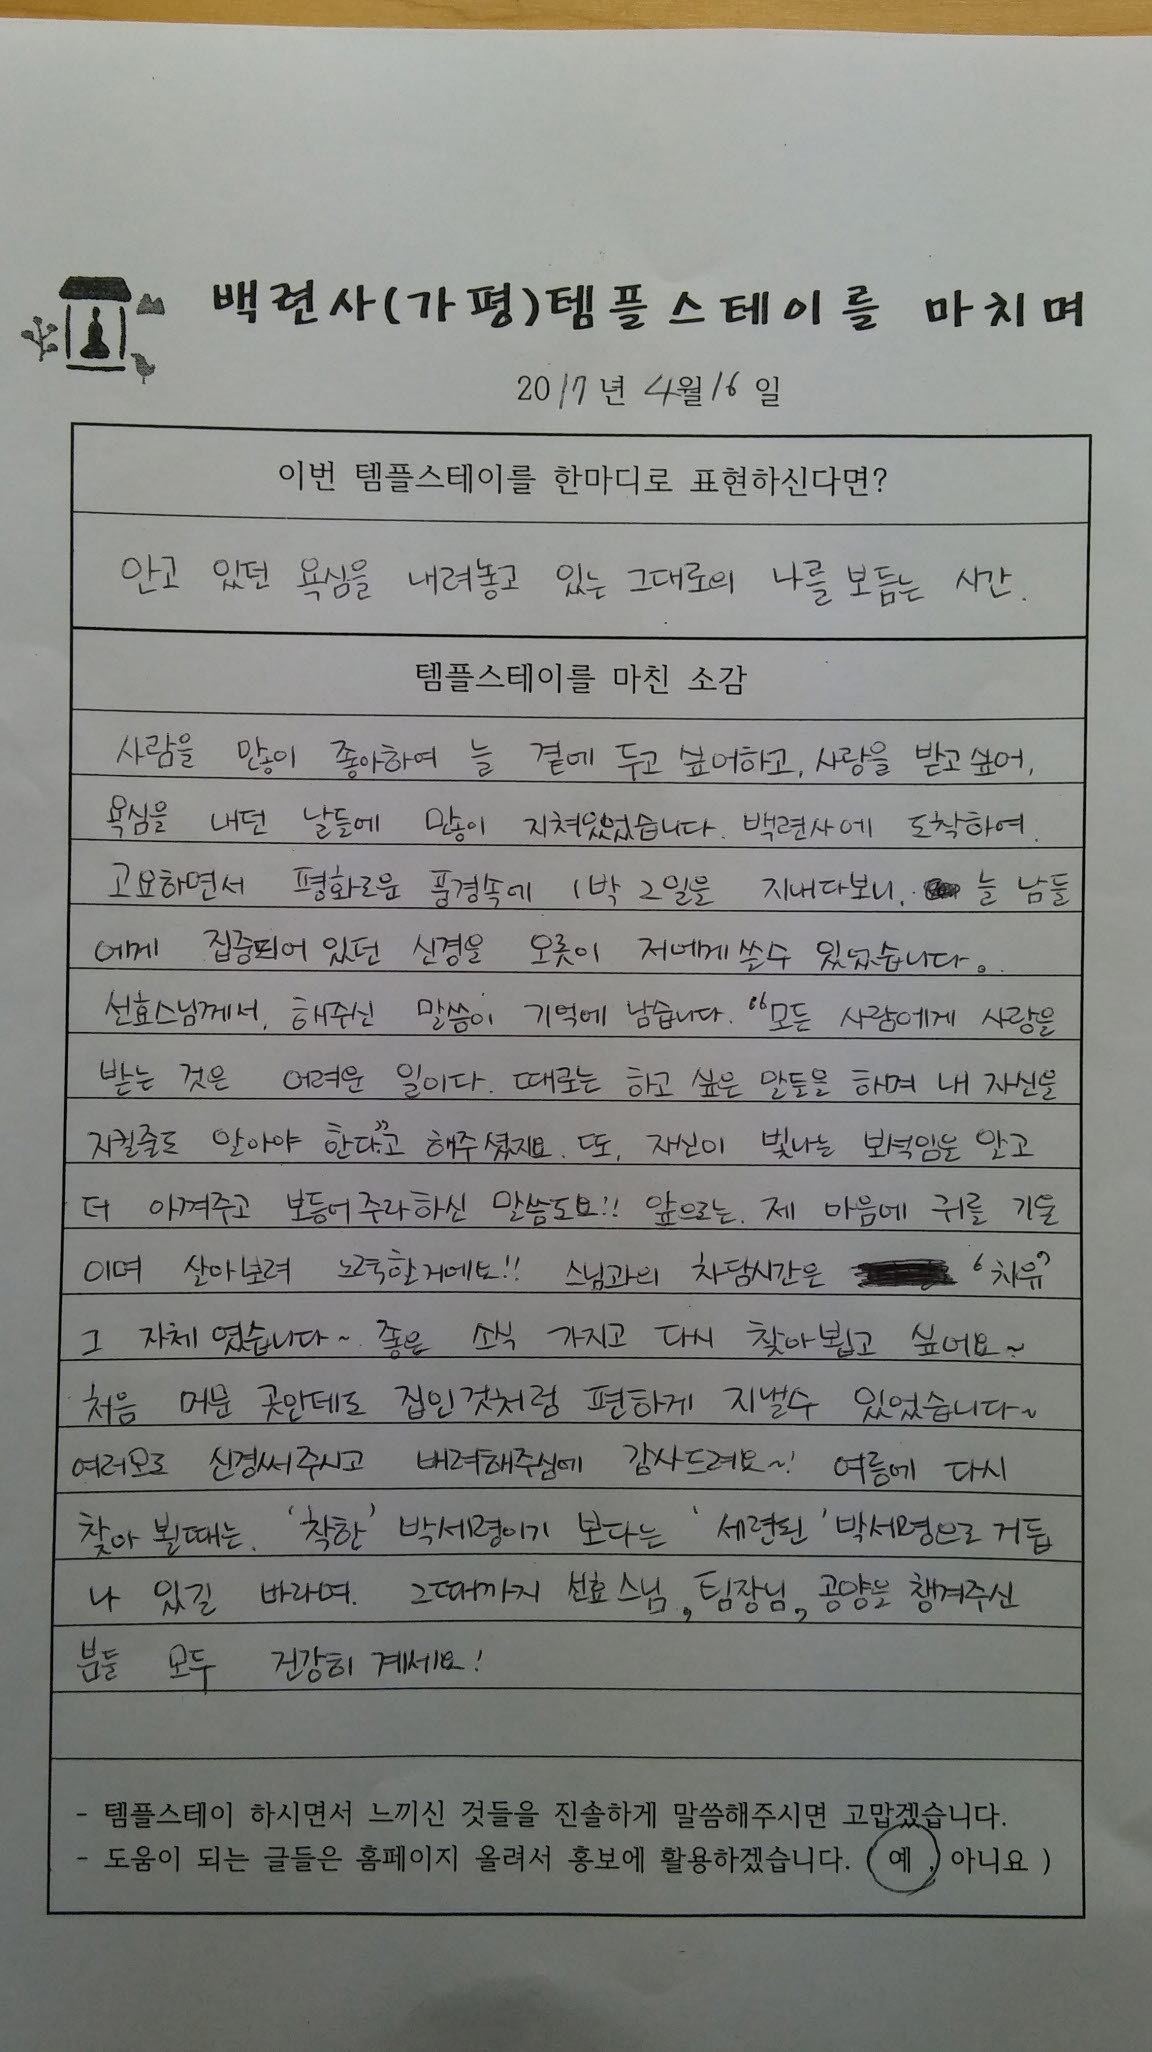 백련사(가평)템플스테이를 마치며
2017년 4월 16일
이번 템플스테이를 한마디로 표현하신다면?
안고 있던 욕심을 내려놓고 있는 그대로의 나를 보듬는 시간.
템플스테이를 마친 소감
사람을 많이 좋아하여 늘 곁에 두고 싶어하고, 사랑을 받고 싶어,
욕심을 내던 날들에 많이 지쳐있었습니다. 백련사에 도착하여
고요하면서 평화로운 풍경속에 1박 2일을 지내다보니, 늘 남들
에게 집중되어 있던 신경을 오롯이 저에게 쓸수 있었습니다.
선효스님께서, 해주신 말씀이 기억에 남습니다. "모든 사람에게 사랑을
받는 것은 어려운 일이다. 때로는 하고 싶은 말들을 하며 내 자신을
지킬줄도 알아야 한다."고 해주셨지요. 또, 자신이 빛나는 보석임을 안고
더 아껴주고 보듬어 주라하신 말씀도요!! 앞으로는, 제 마음에 귀를 기울
이며 살아보려 노력할거에요!! 스님과의 차담시간은 '치유'
그 자체 였습니다~ 좋은 소식 가지고 다시 찾아뵙고 싶어요~
처음 머문 곳인데도 집인것처럼 편하게 지낼수 있었습니다~
여러모로 신경써주시고 배려해주심에 감사드려요~! 여름에 다시
찾아 뵐때는, '착한' 박세령이기 보다는 '세련된' 박세령으로 거듭
나 있길 바라며. 그때까지 선효스님, 팀장님, 공양을 챙겨주신
분들 모두 건강히 계세요!
- 템플스테이 하시면서 느끼신 것들을 진솔하게 말씀해주시면 고맙겠습니다.
- 도움이 되는 글들은 홈페이지 올려서 홍보에 활용하겠습니다. ( 예 , 아니요 )